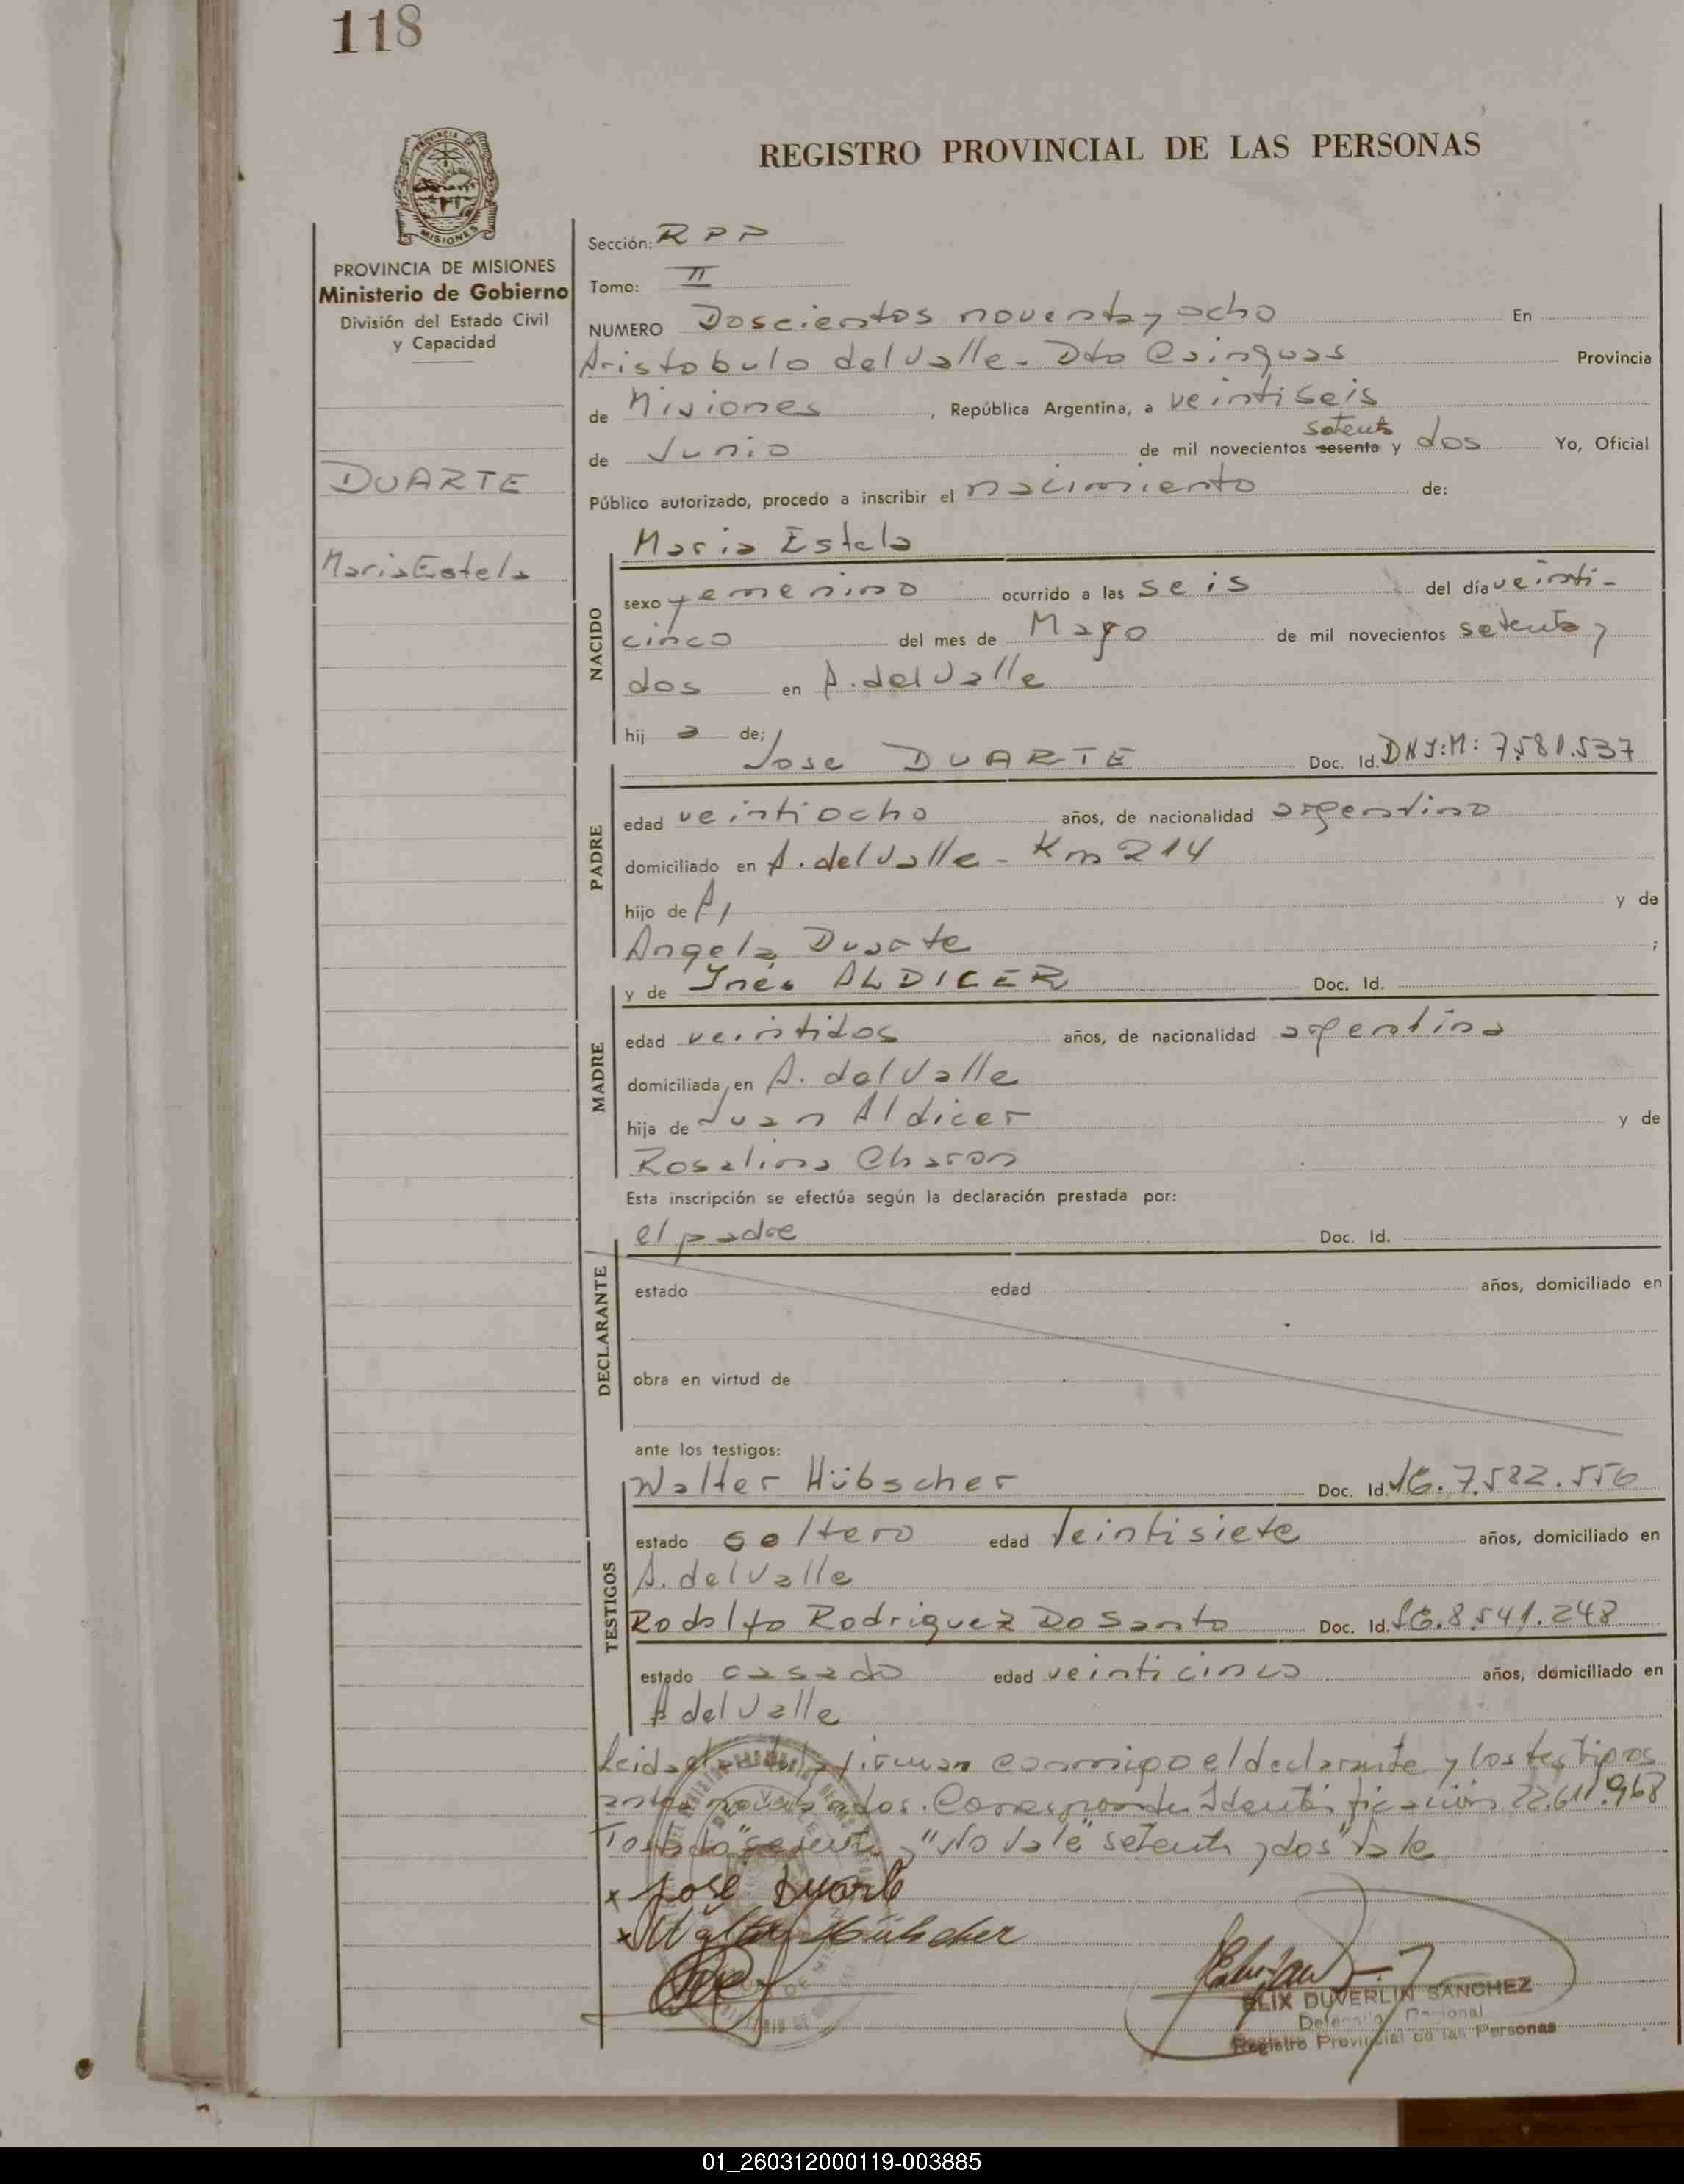 118
REGISTRO PROVINCIAL DE LAS PERSONAS
PROVINCIA DE MISIONES
PROVINCIA DE MISIONES
Ministerio de Gobierno
División del Estado Civil
y Capacidad
DUARTE
Maria Estela
Sección: RPP
Tomo: II
NUMERO Doscientos noventa y ocho En
Aristobulo del Valle - Dto Cainguas Provincia
de Misiones, República Argentina, a veintiseis
setenta
de Junio de mil novecientos sesenta y dos Yo, Oficial
Público autorizado, procedo a inscribir el nacimiento de:
Maria Estela
NACIDO
sexo femenino ocurrido a las seis del día veinti-
cinco del mes de Mayo de mil novecientos setenta y
dos en A. del Valle
hij a de;
Jose DUARTE Doc. Id. DNI:M: 7.581.537
PADRE
edad veintiocho años, de nacionalidad argentino
domiciliado en A. del Valle - Km 214
hijo de y de
Angela Duarte ;
y de Inés ALDICER Doc. Id.
MADRE
edad veintidos años, de nacionalidad argentina
domiciliada en A. del Valle
hija de Juan Aldicer y de
Rosalina Charon
Esta inscripción se efectúa según la declaración prestada por:
el padre Doc. Id.
DECLARANTE
estado edad años, domiciliado en
obra en virtud de
ante los testigos:
Walter Hübscher Doc. Id. 7.582.556
TESTIGOS
estado soltero edad Veintisiete años, domiciliado en
A. del Valle
Rodolfo Rodriguez Do Santo Doc. Id. 8.541.248
estado casado edad veinticinco años, domiciliado en
A del Valle
Leida el acta firman conmigo el declarante y los testigos
antes nombrados. Corresponde Identificación 22.611.968
Testado "sesenta y "No Vale" setenta y dos" Vale
x José Duarte
x Walter Hübscher
ELIX DUVERLIN SANCHEZ
Registro Provincial de las Personas
01_260312000119-003885